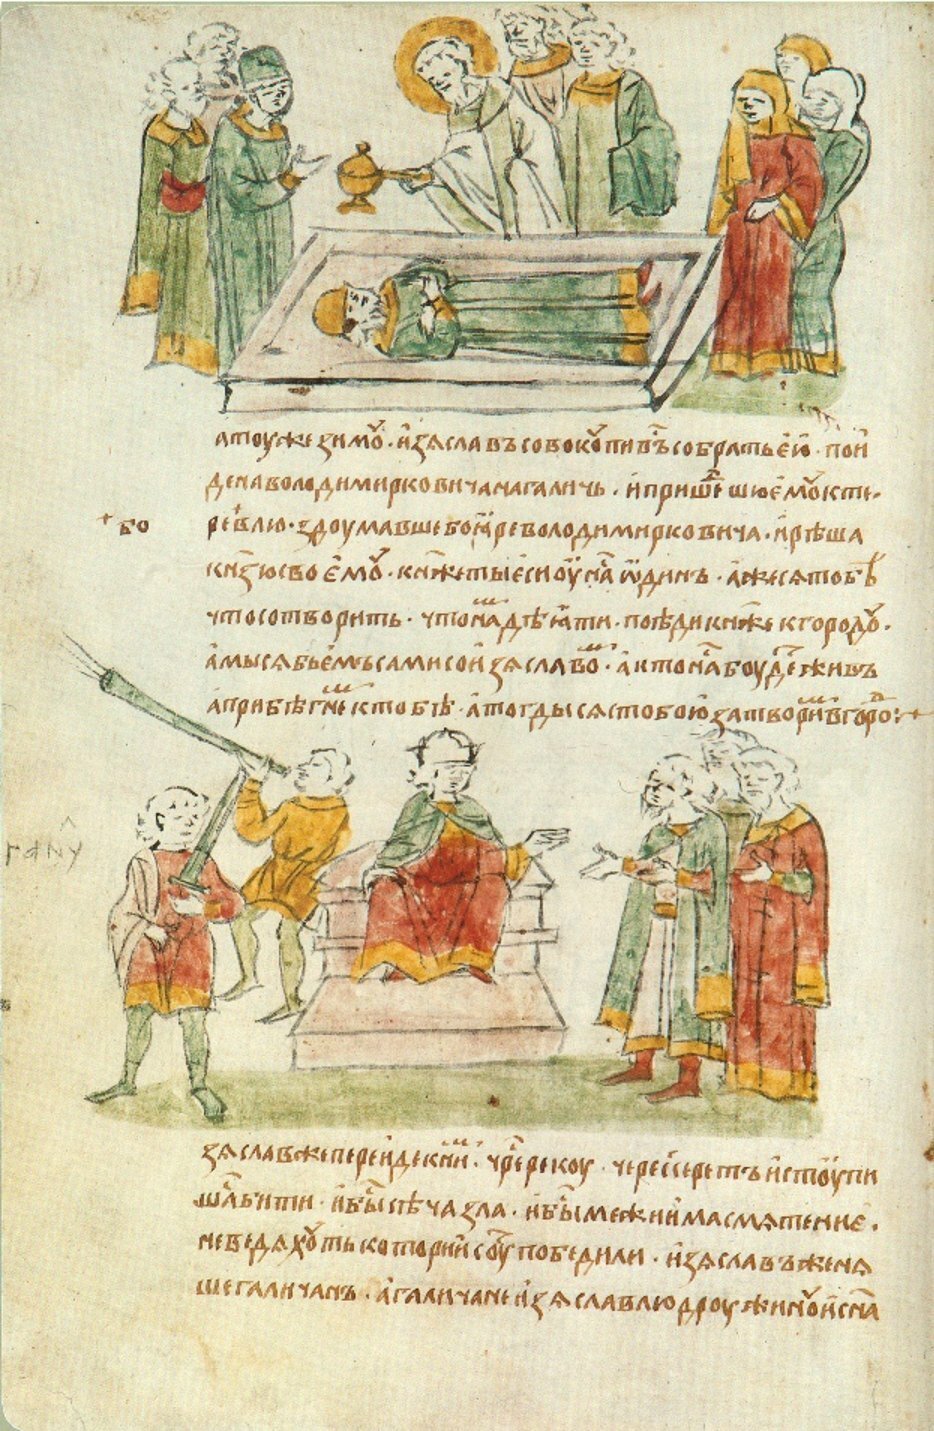 а тоуже зимꙋ · и҆зяславъ совокꙋпивъсѧ собратьею̀ · пои҆
де на володимирковича на галичь · и҆ пришеⷣшю е҆мꙋ к те
+ бо
ребⷡлю · здоумавше боѧре володимирковича · и҆ рѣша
кнз҃ю своемꙋ̀ · кнѧже ты е҆си оу҆ наⷭ ѿдинъ · а҆ же сѧ тобѣ
что сотворить · что наⷨ дѣꙗ҆ти · поѣди кнѧже к городꙋ ·
а҆ мы сѧ бьемъ сами со и҆зѧславоⷨ · а҆ кто наⷭ боудеⷮ живъ
а прибѣгнеⷮ к тобѣ · а҆ тогды сѧ с тобою затвориⷨ в гороⷣ :+
гдⷭну
зяслав же переи҆де к ниⷨ · чрⷭе рекоу · череⷭ серетъ и҆ стоу҆пи
шаⷭ бити · и҆ быⷭ сѣча зла · и҆ быⷭ межи и҆ма смѧтение ·
не ведѧхꙋть котории҆ соу҆ть победили · и҆зяславъ женѧ
ше галичанъ · а҆ галичане и҆зяславлю дроужинꙋ и҆ снⷭа